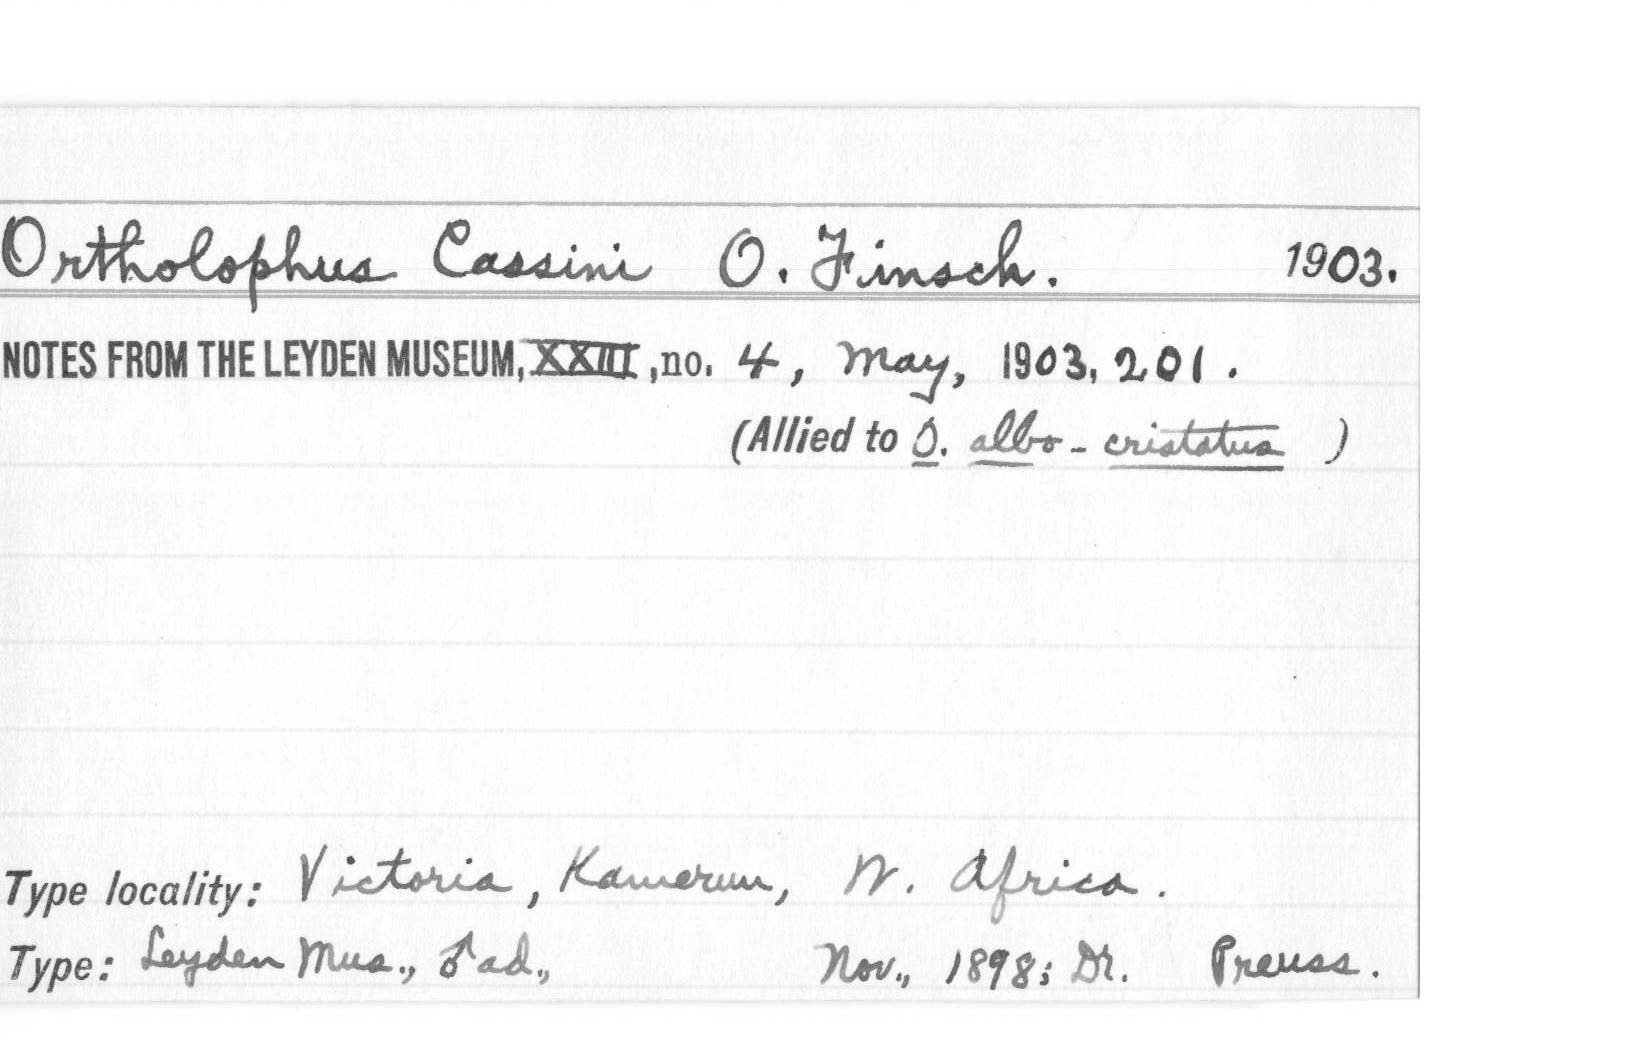 Ortholophus Cassini O. Finsch. 1903.
NOTES FROM THE LEYDEN MUSEUM, XXIII, no. 4, May, 1903, 201.
(Allied to O. albo-cristatus )
Type locality: Victoria, Kamerun, W. Africa.
Type: Leyden Mus., ♂ ad., Nov., 1898; Dr. Preuss.